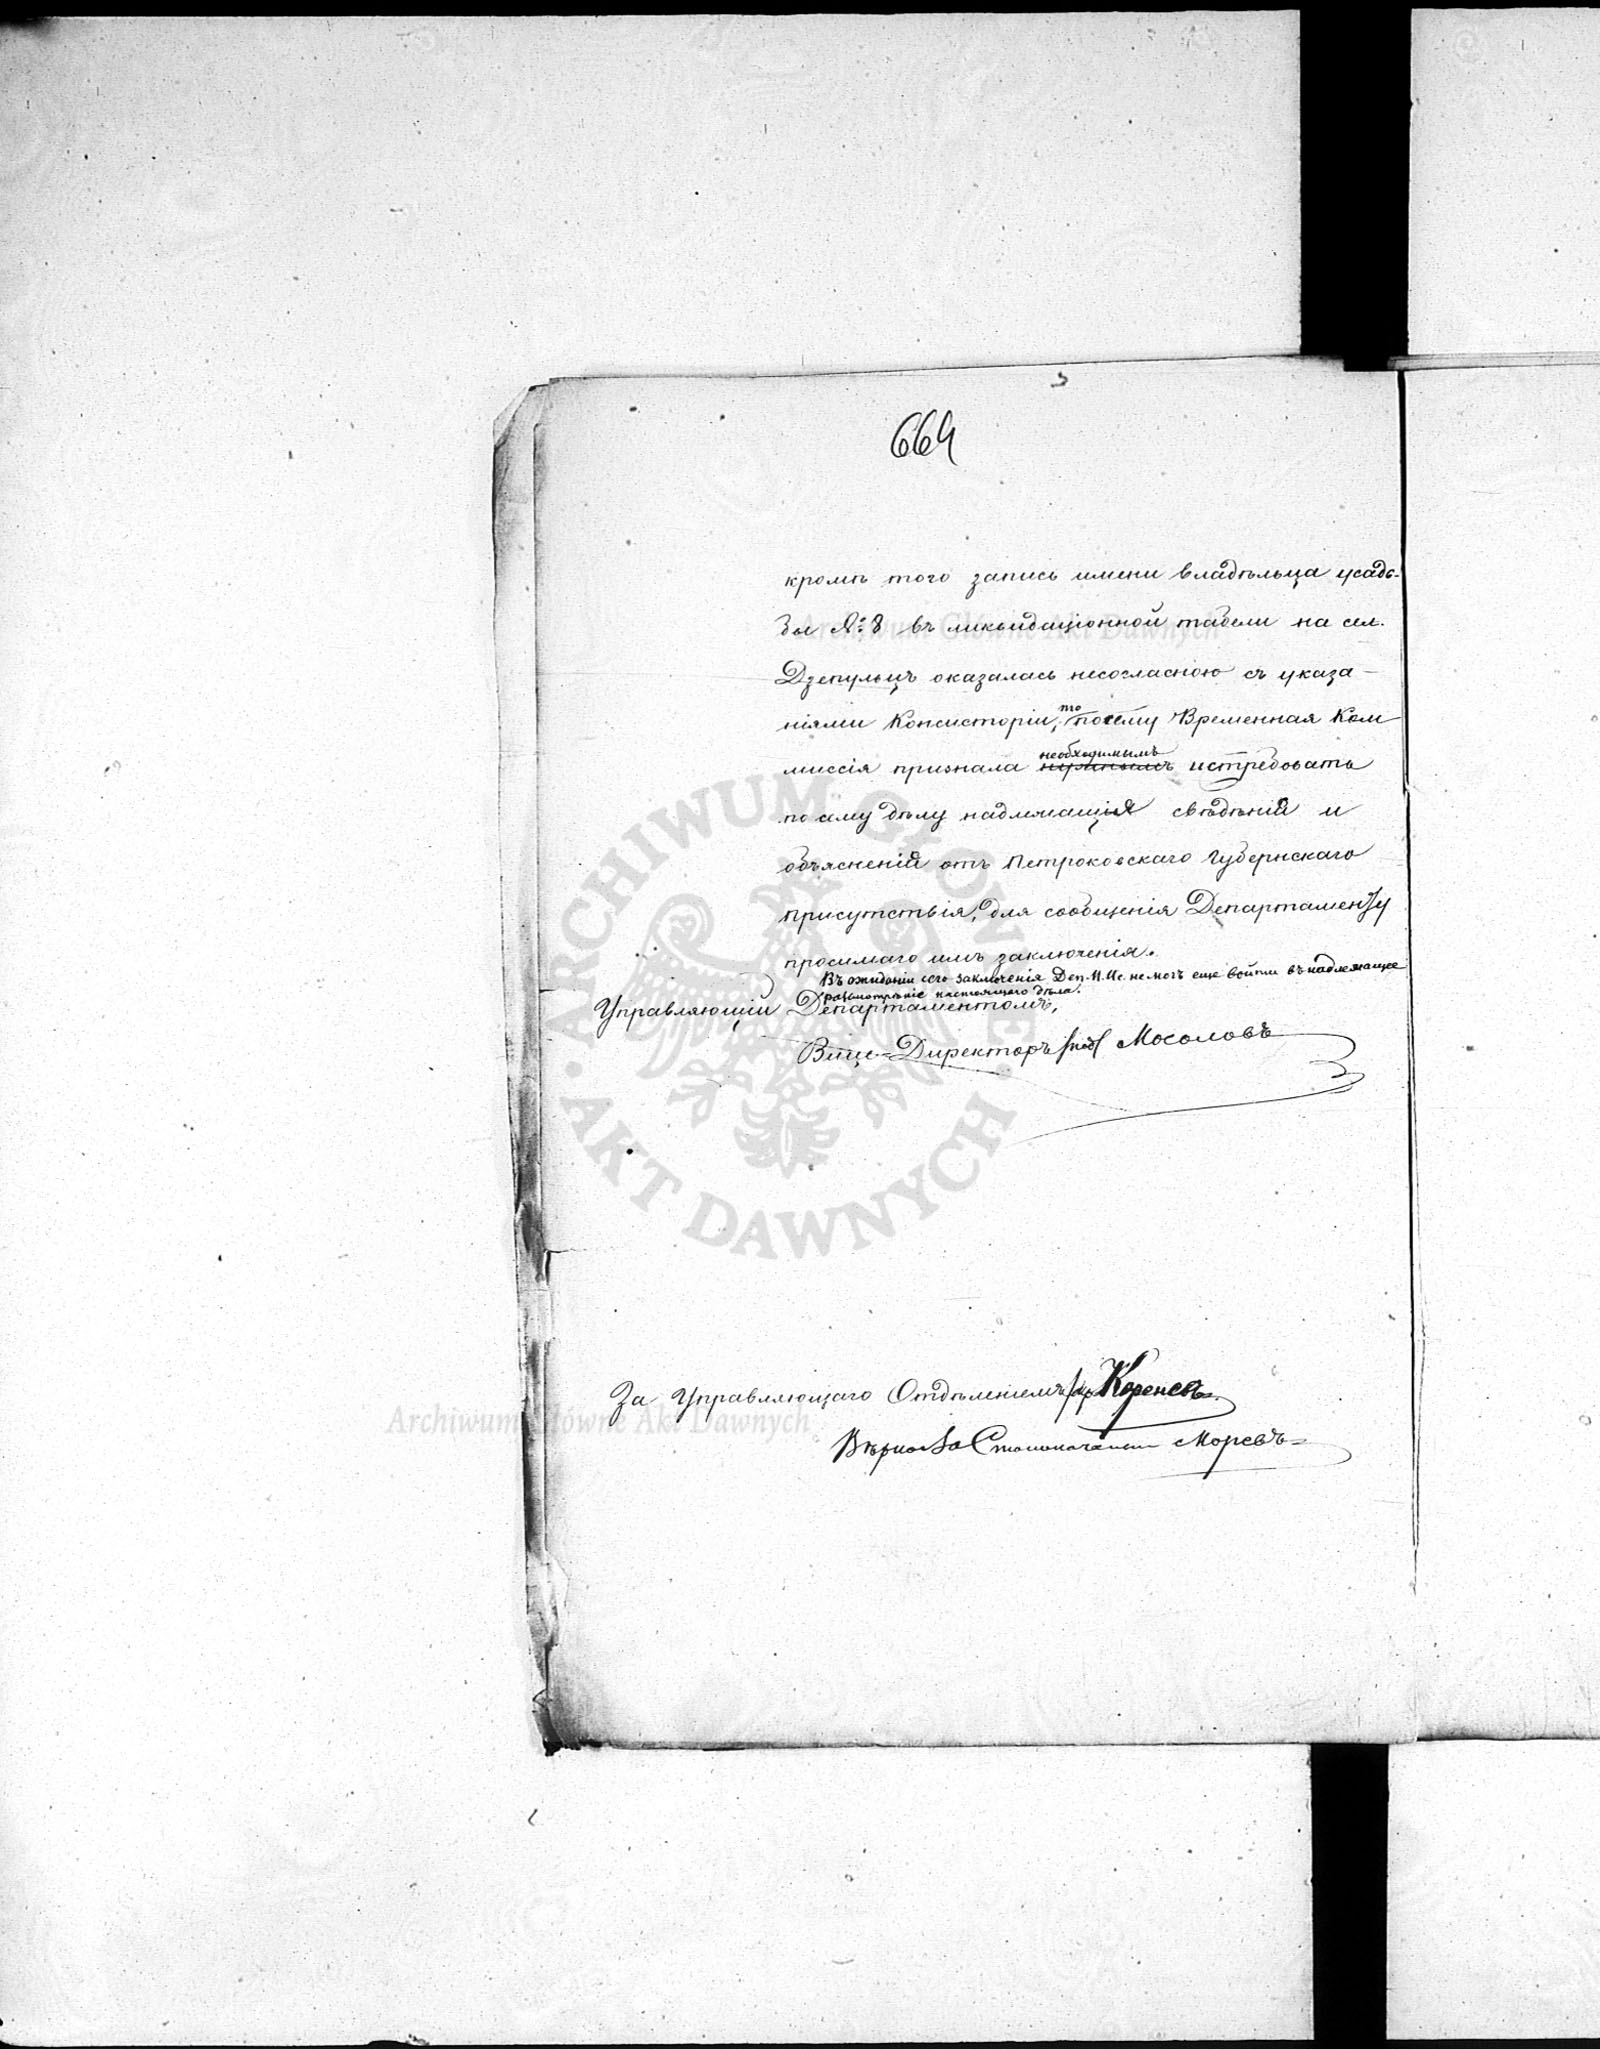 664
кромѣ того запись имени владѣльца усадь-
бы №: 8 въ ликвидаціонной табели на сел.
Дзепульцъ оказалась несогласною съ указа-
ніями Консисторіи, то посему Временная Ком-
миссія признала необходимымъ истребовать
по сему дѣлу надлежащія свѣдѣнія и
объясненія отъ Петроковскаго Губернскаго
присутствія, для сообщенія Департаменту
просимаго имъ заключенія.
Въ ожиданіи сего заключенія Деп. И. Ис. не могъ еще войти въ надлежащее
разсмотрѣніе настоящаго дѣла.
Управляющій Департаментомъ,
Вице-Директоръ /под/ Мосоловъ
За Управляющаго Отдѣленіемъ Кореневъ
Вѣрно За Столоначальн Моревъ
ARCHIWUM GŁÓWNE AKT DAWNYCH
Archiwum Główne Akt Dawnych
Archiwum Główne Akt Dawnych